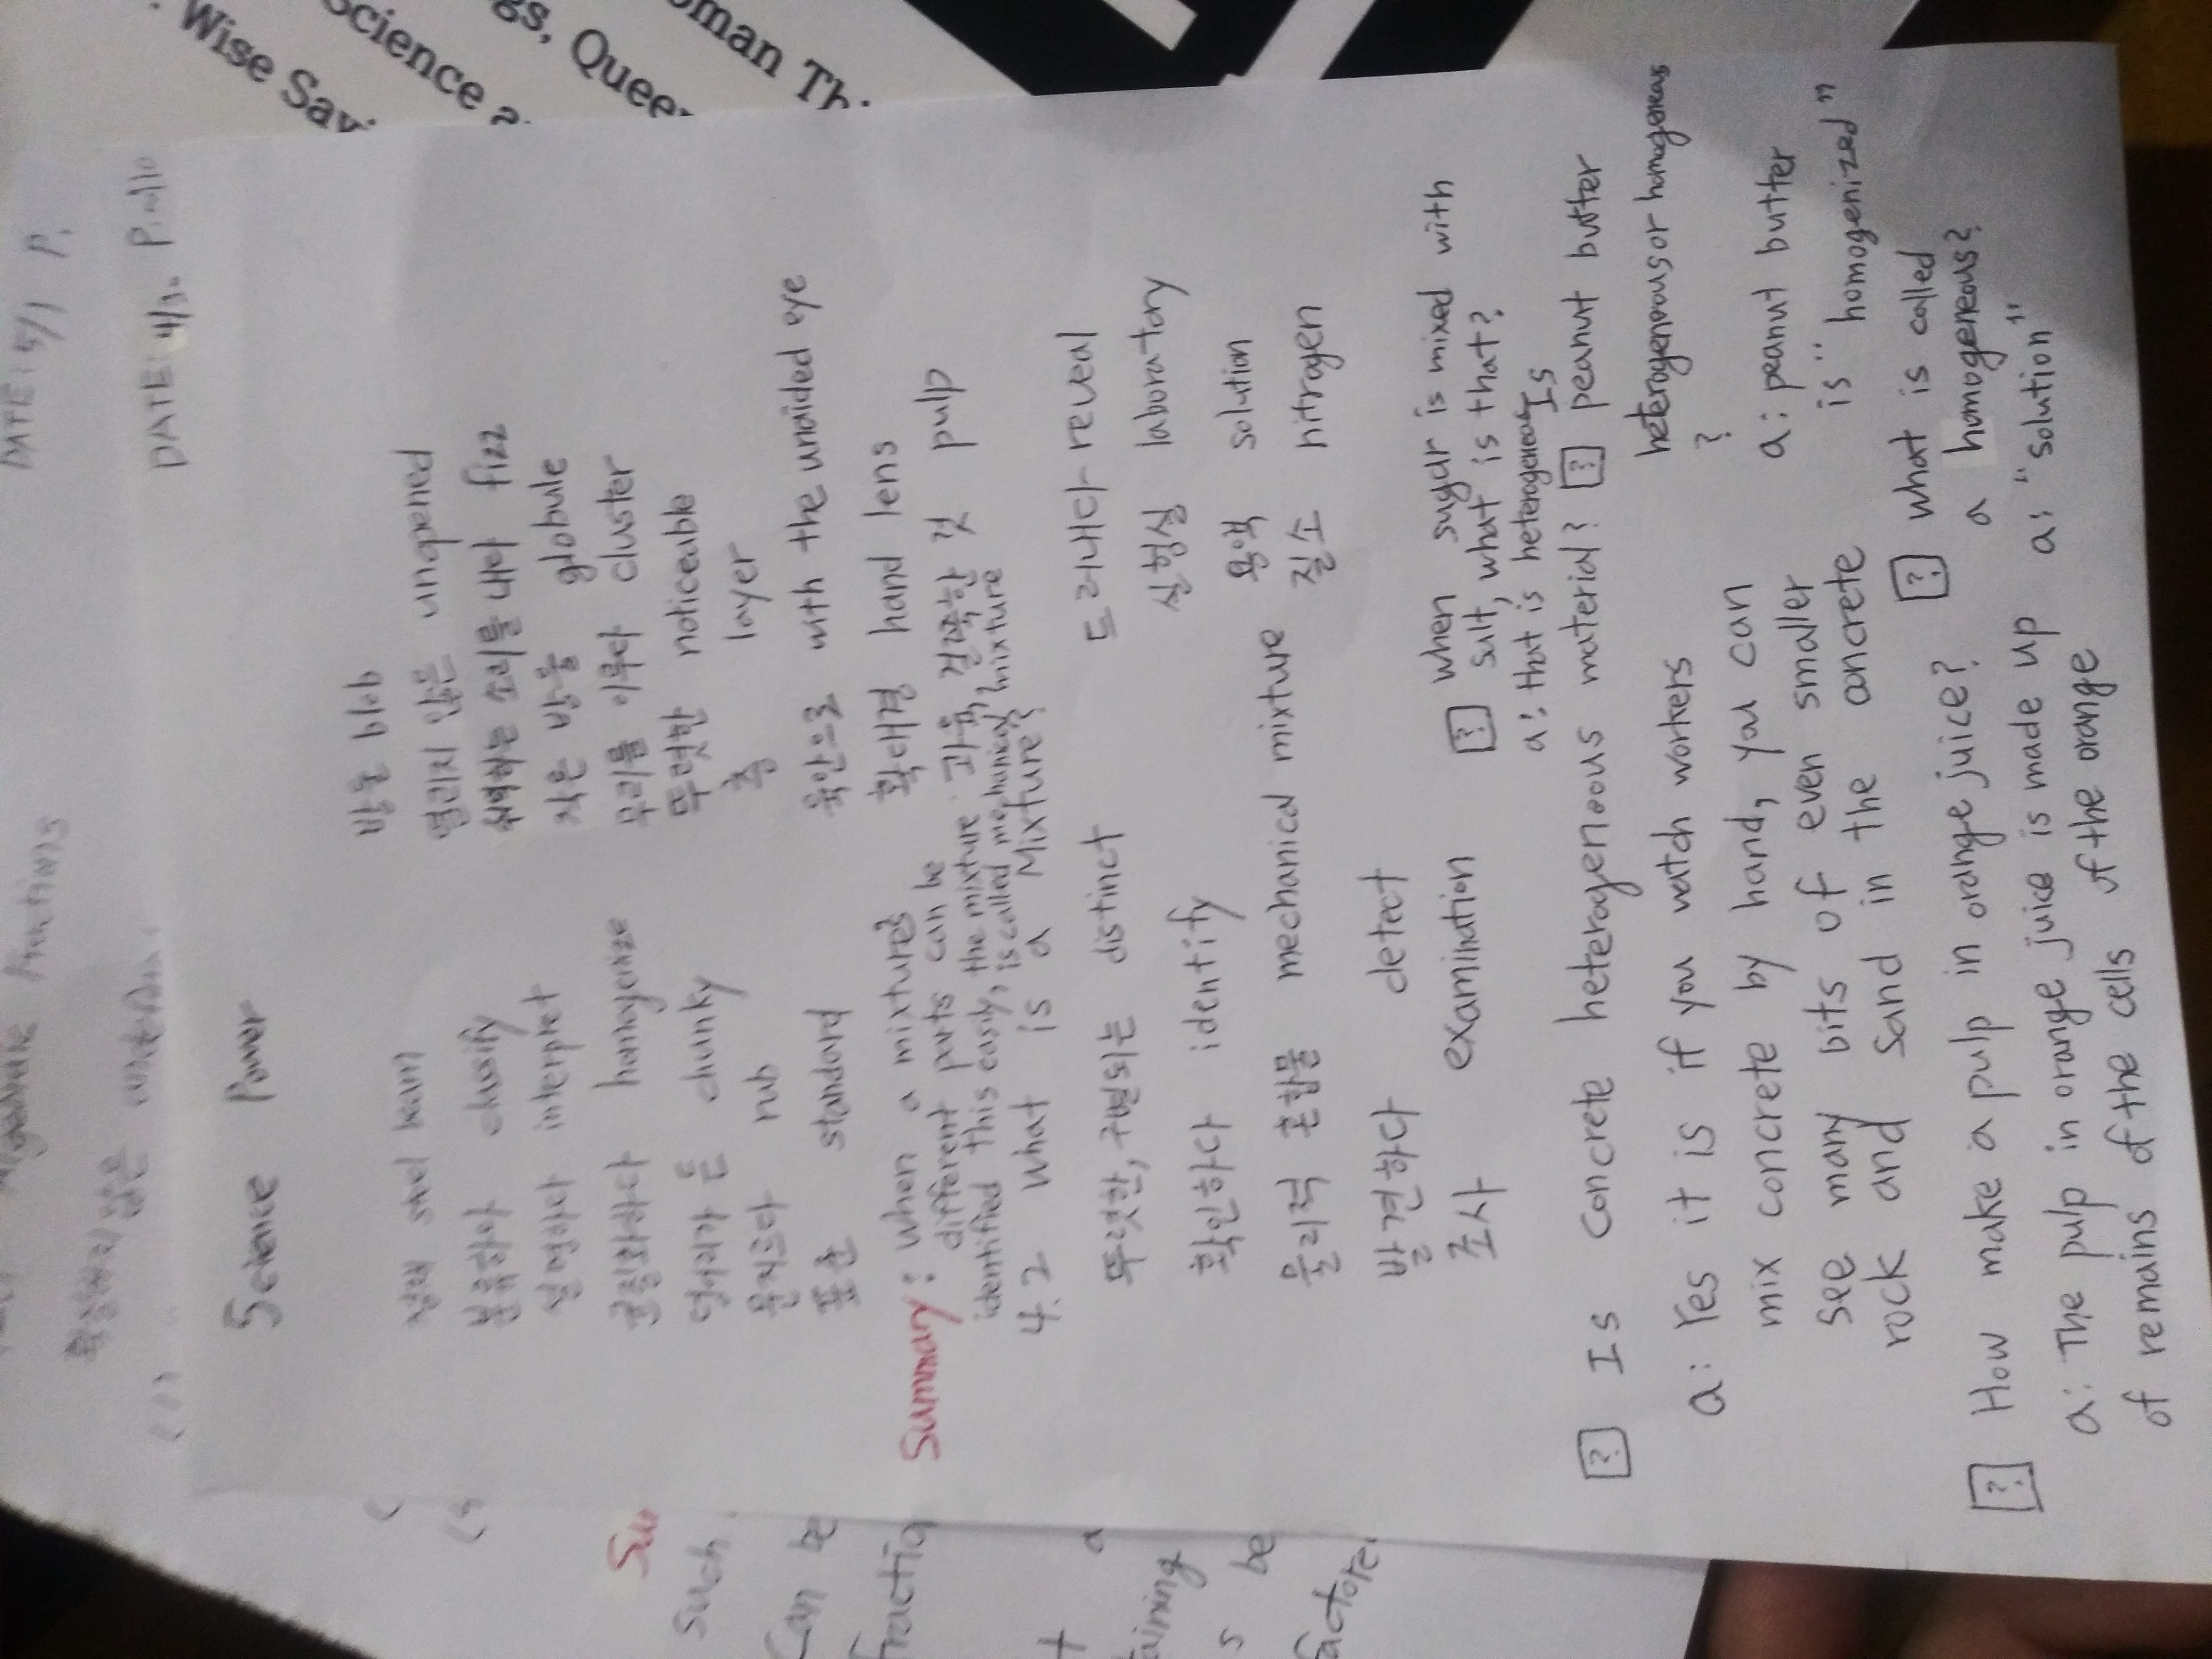 Wise Sayi
Science
gs, Quee
oman Thi
DATE: 5/1 P.
DATE: 4/30 P.
Science Power
방울 blob
steel beam
열리지 않은 unopened
분류하다 classify
쉬익하는 소리를 내다 fizz
설명하다 interpret
작은 방울 globule
균질화하다 homogenize
무리를 이루다 cluster
덩어리가 든 chunky
뚜렷한 noticeable
문지르다 rub
층 layer
표준 standard
육안으로 with the unaided eye
확대경 hand lens
과육, 걸쭉한 것 pulp
Summary: when a mixture's
different parts can be
identified this easily, the mixture
is called mechanical mixture
4.2 what is a Mixture?
뚜렷한, 구별되는 distinct
드러내다 reveal
확인하다 identify
실험실 laboratory
물리적 혼합물 mechanical mixture
용액 solution
발견하다 detect
질소 nitrogen
조사 examination
? when sugar is mixed with
salt, what is that?
a: that is heterogeneous
? Is concrete heterogenoous material?
a: Yes it is if you watch workers
mix concrete by hand, you can
see many bits of even smaller
rock and sand in the concrete
? Is peanut butter
heterogenous or homogeneous
?
a: peanut butter
is "homogenized"
? How make a pulp in orange juice?
a: The pulp in orange juice is made up
of remains of the cells of the orange
? what is called
a homogeneous?
a: "solution"
Su
such
Can be
fractio
t a
taining
s be
factore